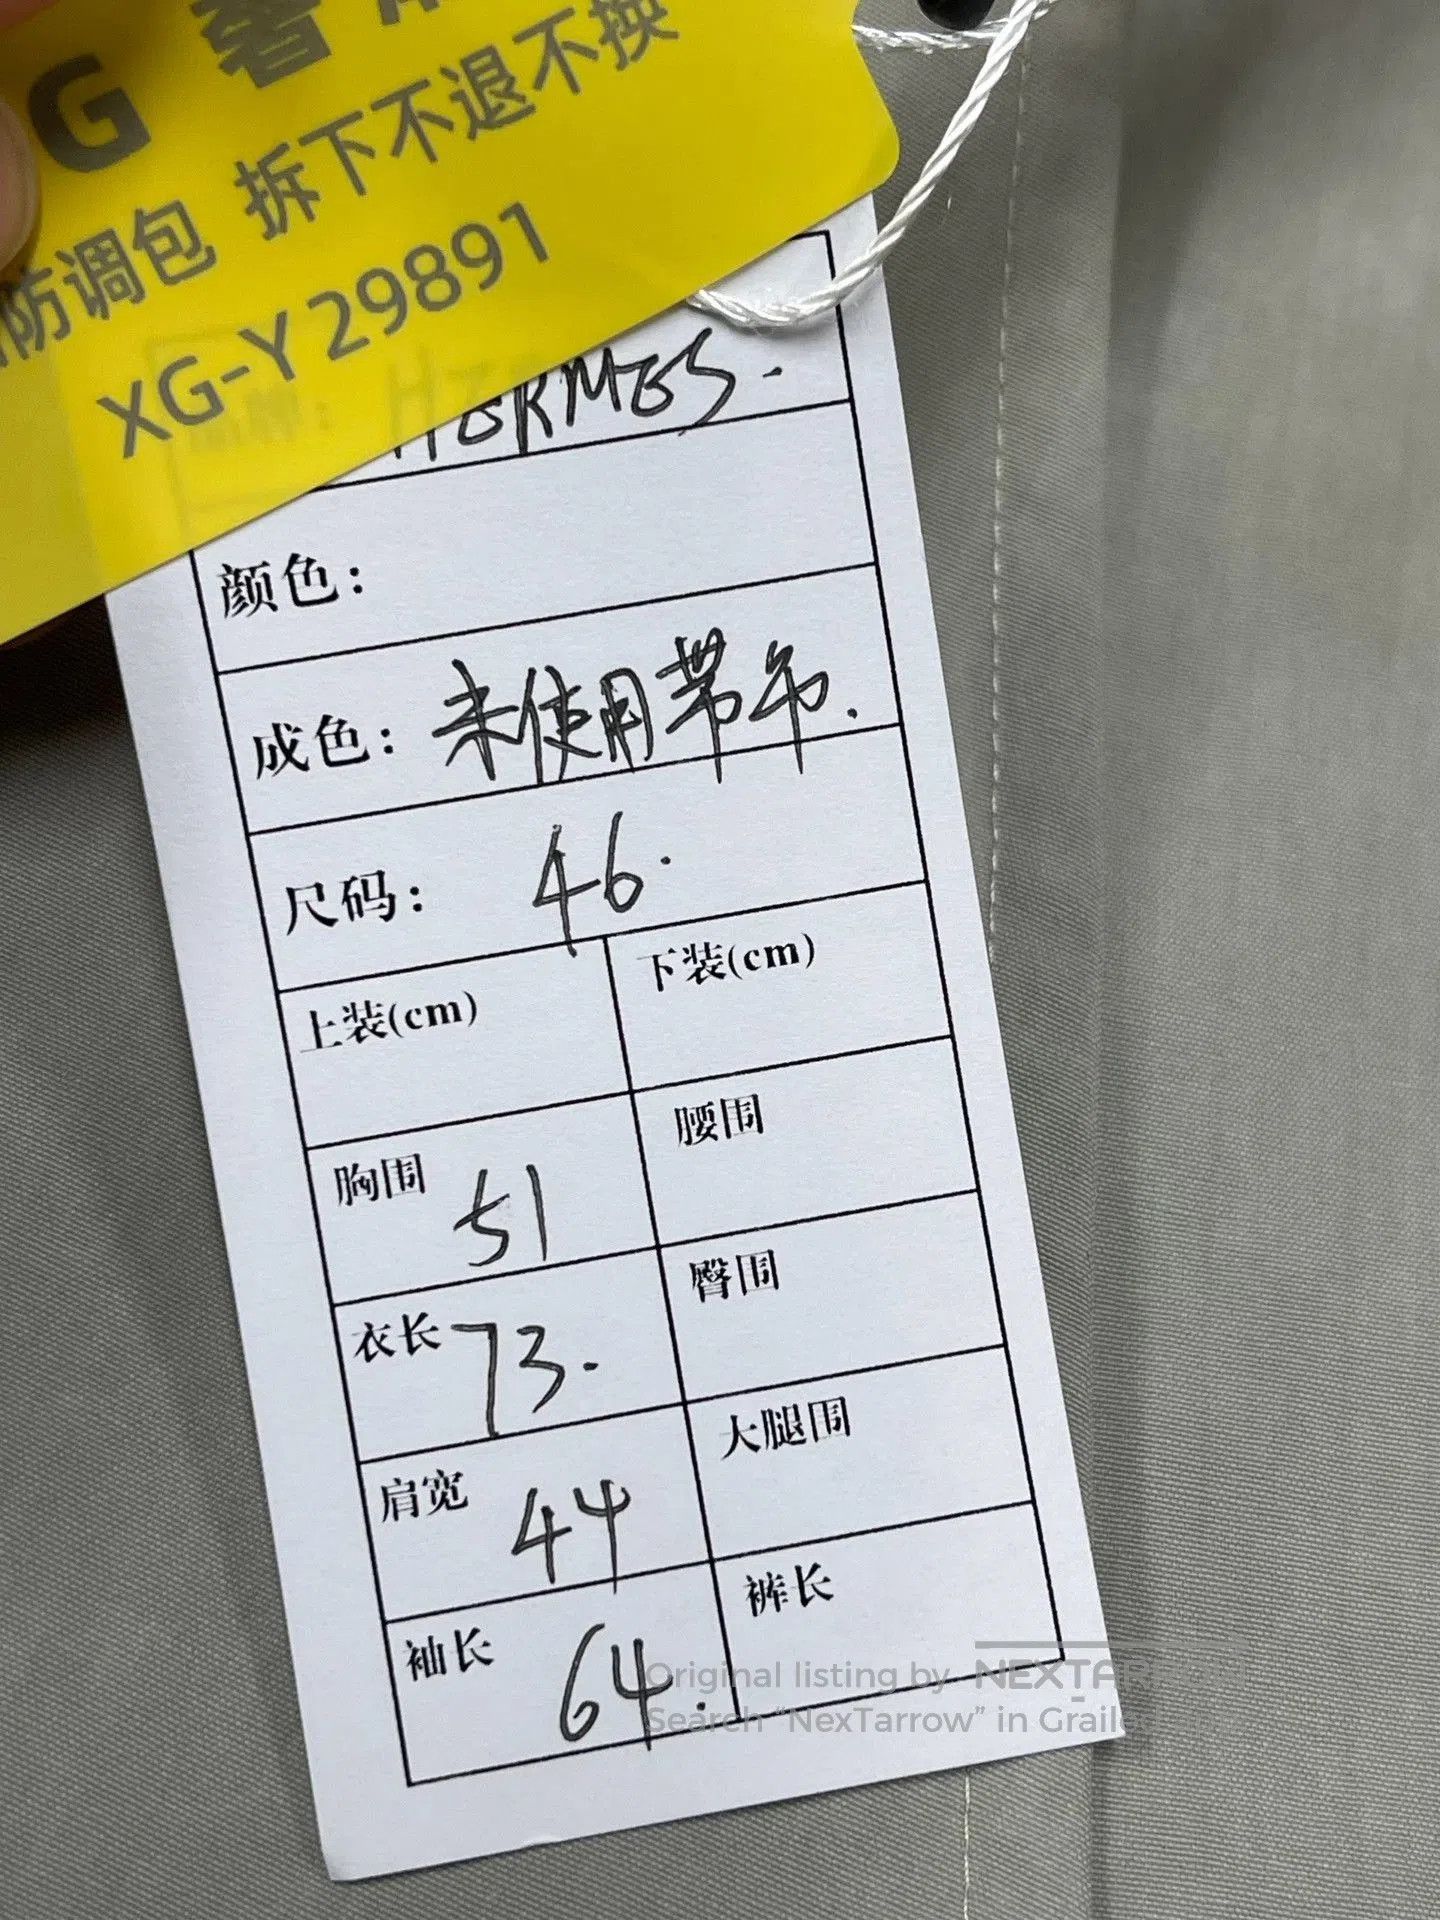 G 奢
防调包 拆下不退不换
XG-Y29891
HERMES.
颜色：
成色： 未使用带吊.
尺码： 46.
上装(cm) 下装(cm)
胸围 51 腰围
衣长 73. 臀围
肩宽 44 大腿围
袖长 64. 裤长
Original listing by NEXTARROW
Search “NexTarrow” in Grailed